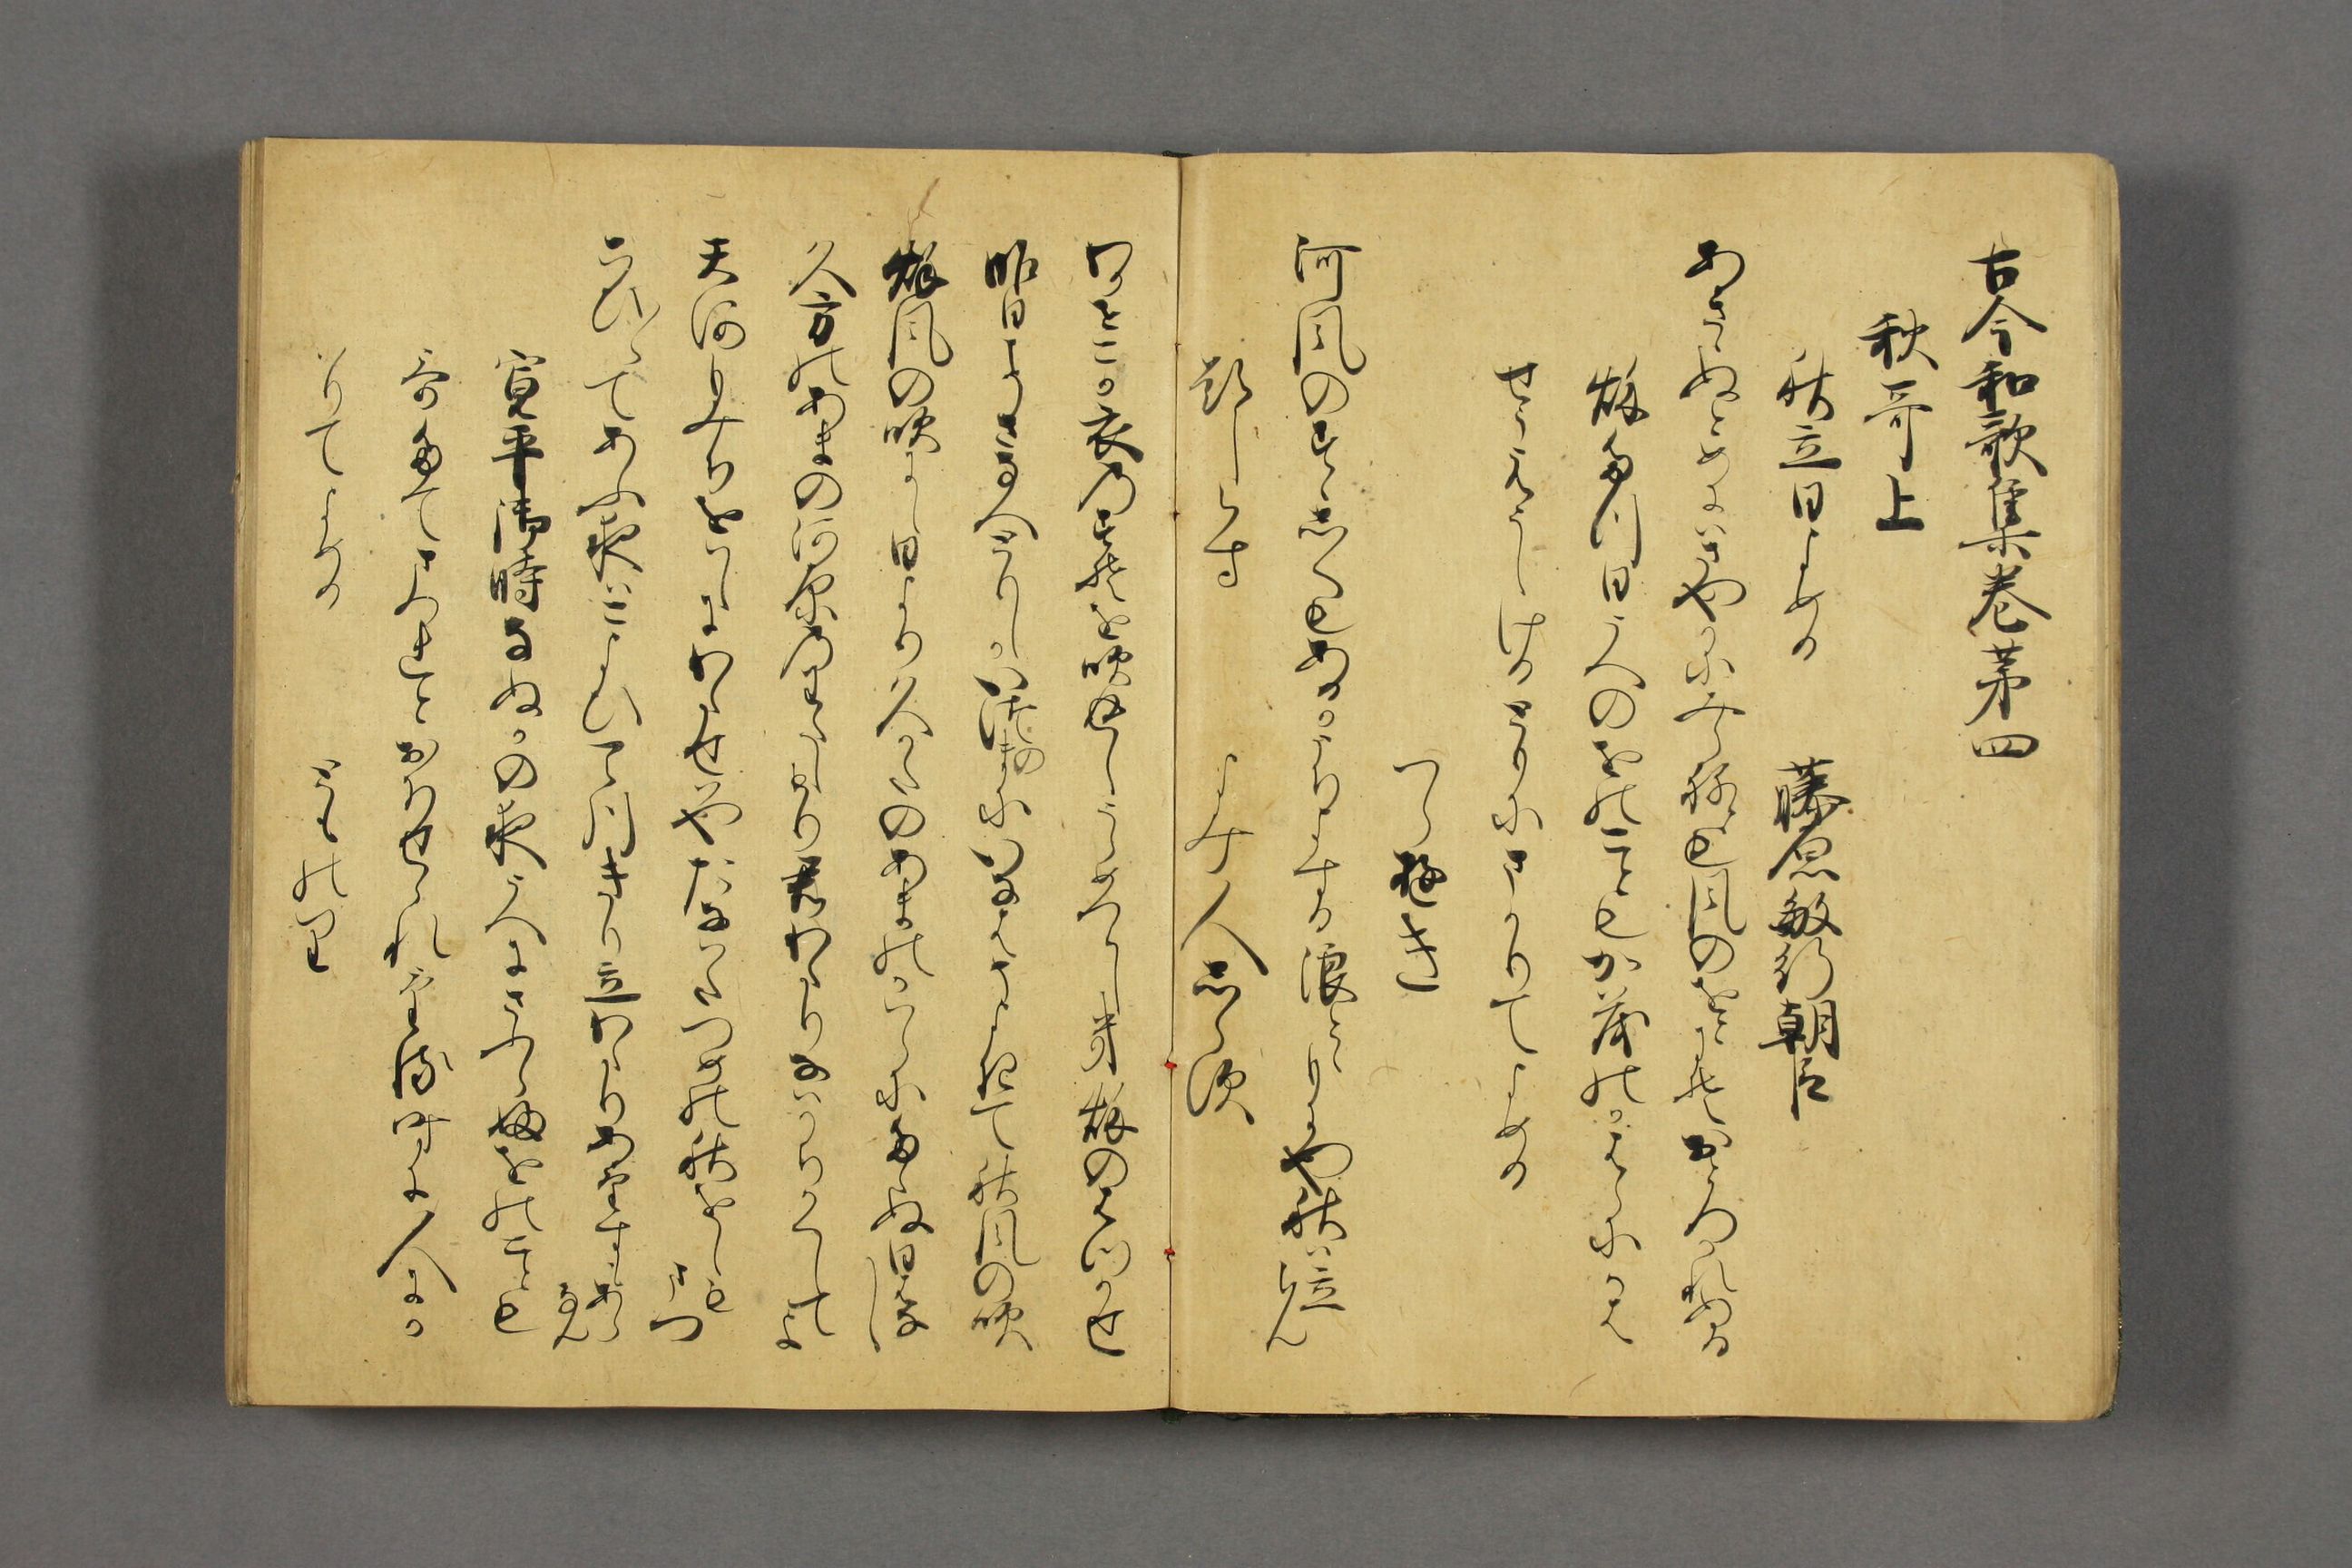 古今和歌集巻第四
秋哥上
秋立日よめる　藤原敏行朝臣
あきゝぬとめにはさやかに見えねとも風のをとにそおとろかれぬる
秋たつ日うへのをのこともかもの河原にかは
せうえうしけるともにまかりてよめる
つらゆき
河風のすゝしくもあるかうちよする浪とゝもにや秋は立らん
題しらす　よみ人しらす
わかせこか衣のすそを吹返しうらめつらしき秋のはつかせ
昨日こそさなへとりしかいつのまにいなはそよきて秋風の吹
秋風の吹にし日より久方のあまのかはらにたゝぬ日はなし
久方のあまのかはらのわたしもり君わたりなはかちかくしてよ
天河もみちをはしにわたせはやたなはたつめの秋をしもまつ
こひ〳〵てあふ夜はこよひあまの河きり立わたりあけすもあらなん
寛平御時なぬかの夜うへにさふらふをのことも
哥たてまつれとおほせられける時に人にか
はりてよめる　とものり